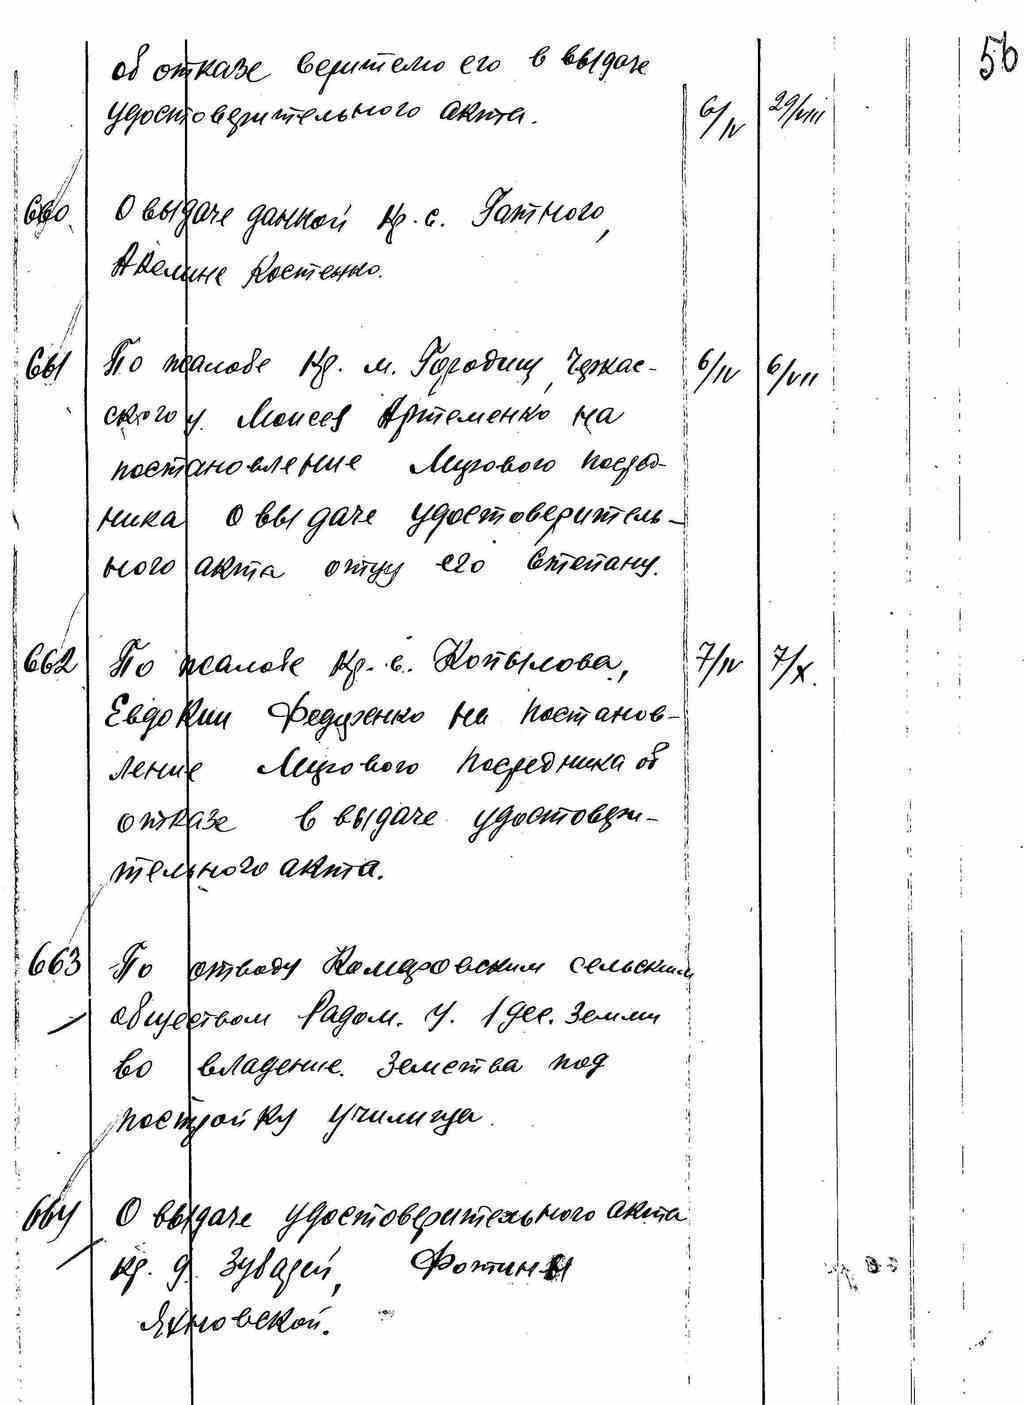 56
об отказе верителю его в выдаче
удостоверительного акта. 6/IV 29/VIII
660. О выдаче данной кр. с. Гатного,
Акелине Костенко.
661 По жалобе кр. м. Городищ, Черкас-
ского у. Моисея Артеменко на
постановление Мирового посред-
ника о выдаче удостоверитель-
ного акта отцу его Степану.
6/IV 6/VII
662 По жалобе кр. с. Копылова,
Евдокии Федоренко на постанов-
ление Мирового посредника об
отказе в выдаче удостовери-
тельного акта.
7/IV 7/X.
663 По отводу Комаровским сельским
обществом Радом. у. 1 дес. земли
во владение земства под
постройку училища.
664 О выдаче удостоверительного акта
кр. д. Зубарей, Фотины
Яхновской.